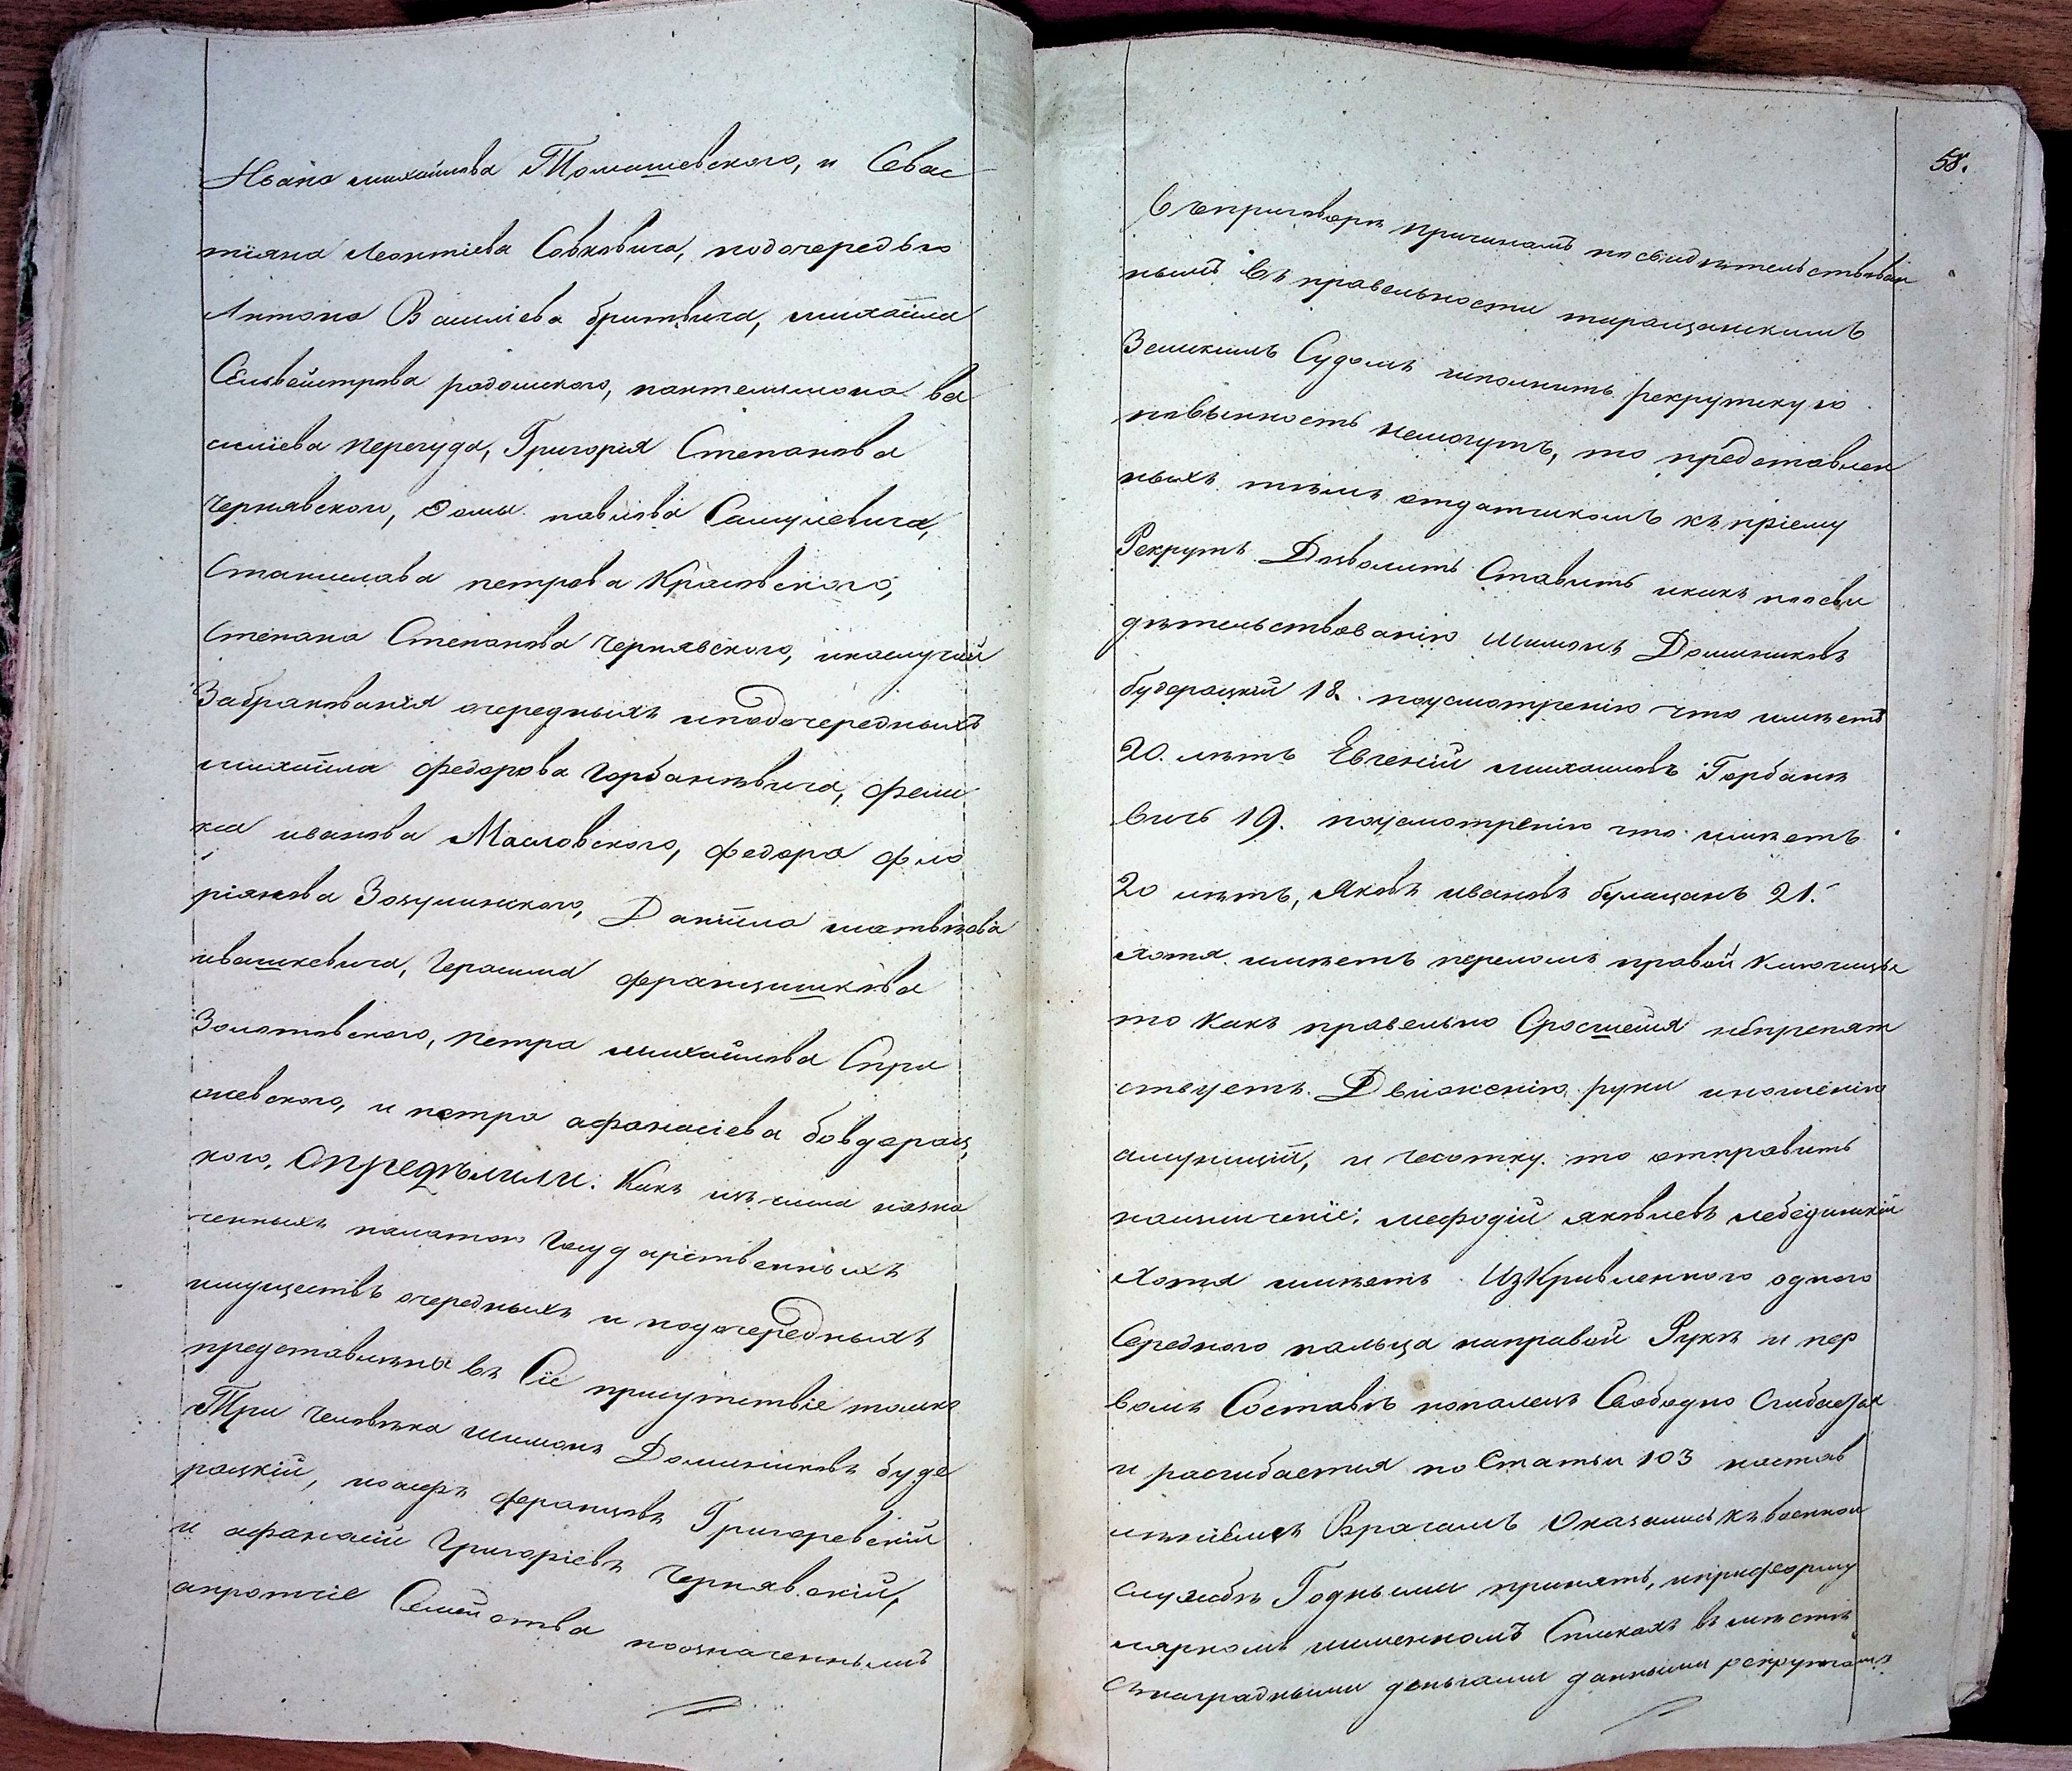 Ивана михайлова Томашевского, и Севас
тіяна Леонтіева Савковича, подочередью
Антона Василіева бритвича, михаила
Селвейстрова радомского, пантелимона ва
силіева перегуда, Григорія Степанова
чернявского, Фомы павлова Самуилевича,
Станислава петрова Красовского,
Степана Степанова чернявского, инаслучай
Забракованія очередныхъ иподочередныхъ
михаила федорова горбаневича, фели
кса иванова Масловского, федора фло
ріянова Зозулинского, Данила матвѣева
ивашкевича, герасима францишкова
Золотовского, петра михайлова
и петра афанасіева бовдерац
кого, Опредѣлили: Какъ изъ числа назна
ченныхъ палатою государственныхъ
имуществъ очередныхъ и подочередныхъ
представлены въ Сіе присутствіе только
Три человѣка шимонъ Доминиковъ буде
рацкій, иозефъ францовъ Григоревскій
и афанасій григоріевъ чернявскій,
апротчіе Семейства поозначеннымъ
58.
Въ приговорѣ причинамъ посвидѣтельствован
нымъ въ правельности таращанскимъ
Земскимъ Судомъ исполнить рекрутскую
повинность немогутъ, то представлен
ныхъ тѣмъ отдатчикомъ къ пріему
Рекрутъ Дозволить Ставить икакъ поосви
дѣтельствованію шимонъ Доминиковъ
будерацкій 18. поусмотренію что имѣетъ
20. лѣтъ Евгеній михаиловъ Горбане
вичъ 19. поусмотренію что имѣетъ
20 лѣтъ, Яковъ ивановъ булацанъ 21.
хотя имѣетъ переломъ правой Ключицы
то какъ правельно Сросшейся непрепят
ствуетъ Движенію руки иношенію
амуниціи, и чесотку то отправить
наизлеченіе; мефодій яковлевъ лебединскій
хотя имѣетъ Изкривленного одного
Середного пальца направой Рукѣ и пер
вомъ Составѣ нопалецъ Свободно Сгибается
и разгибается по Статьи 103 настав
леніемъ Врачамъ Оказались къ военной
службѣ Годными принять, ипри формy
лярномъ именномъ Спискахъ въ мѣстѣ
Снаградными деньгами данными рекрутамъ